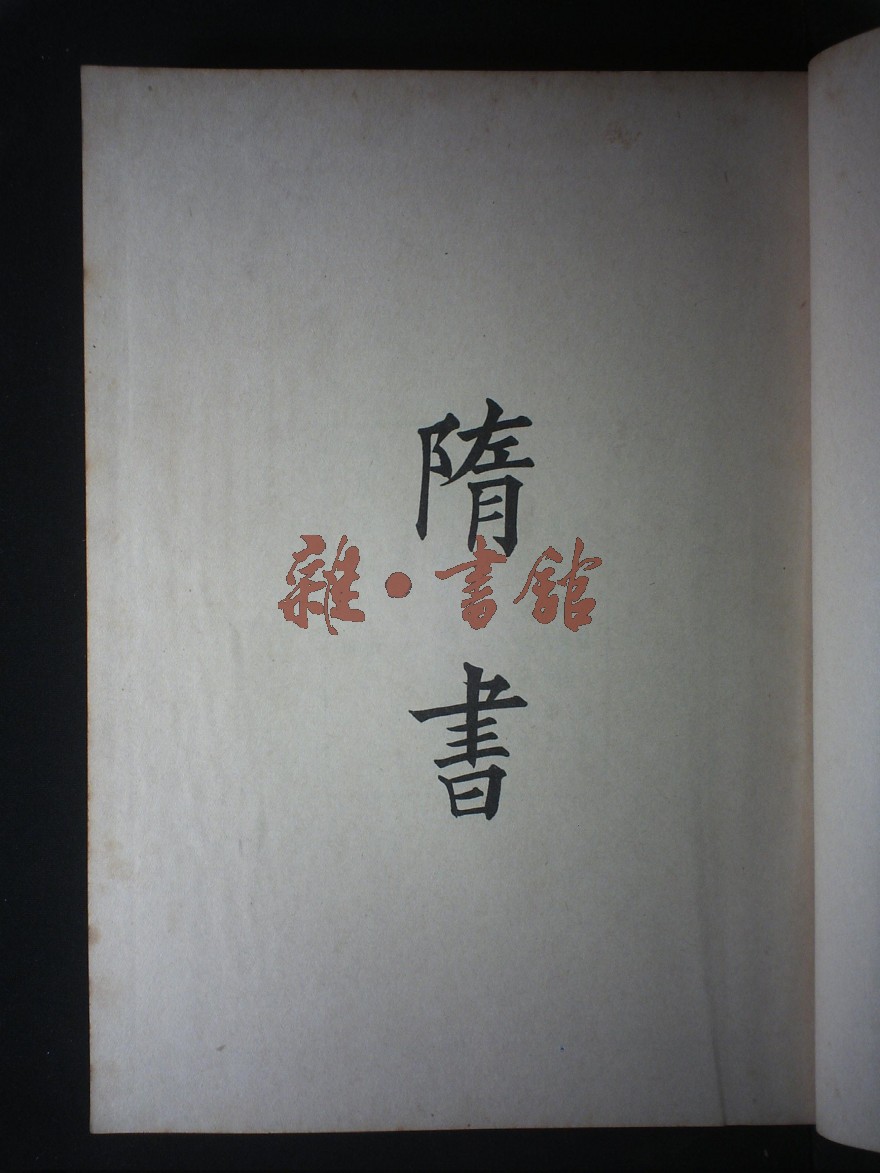 隋書
雜·書館